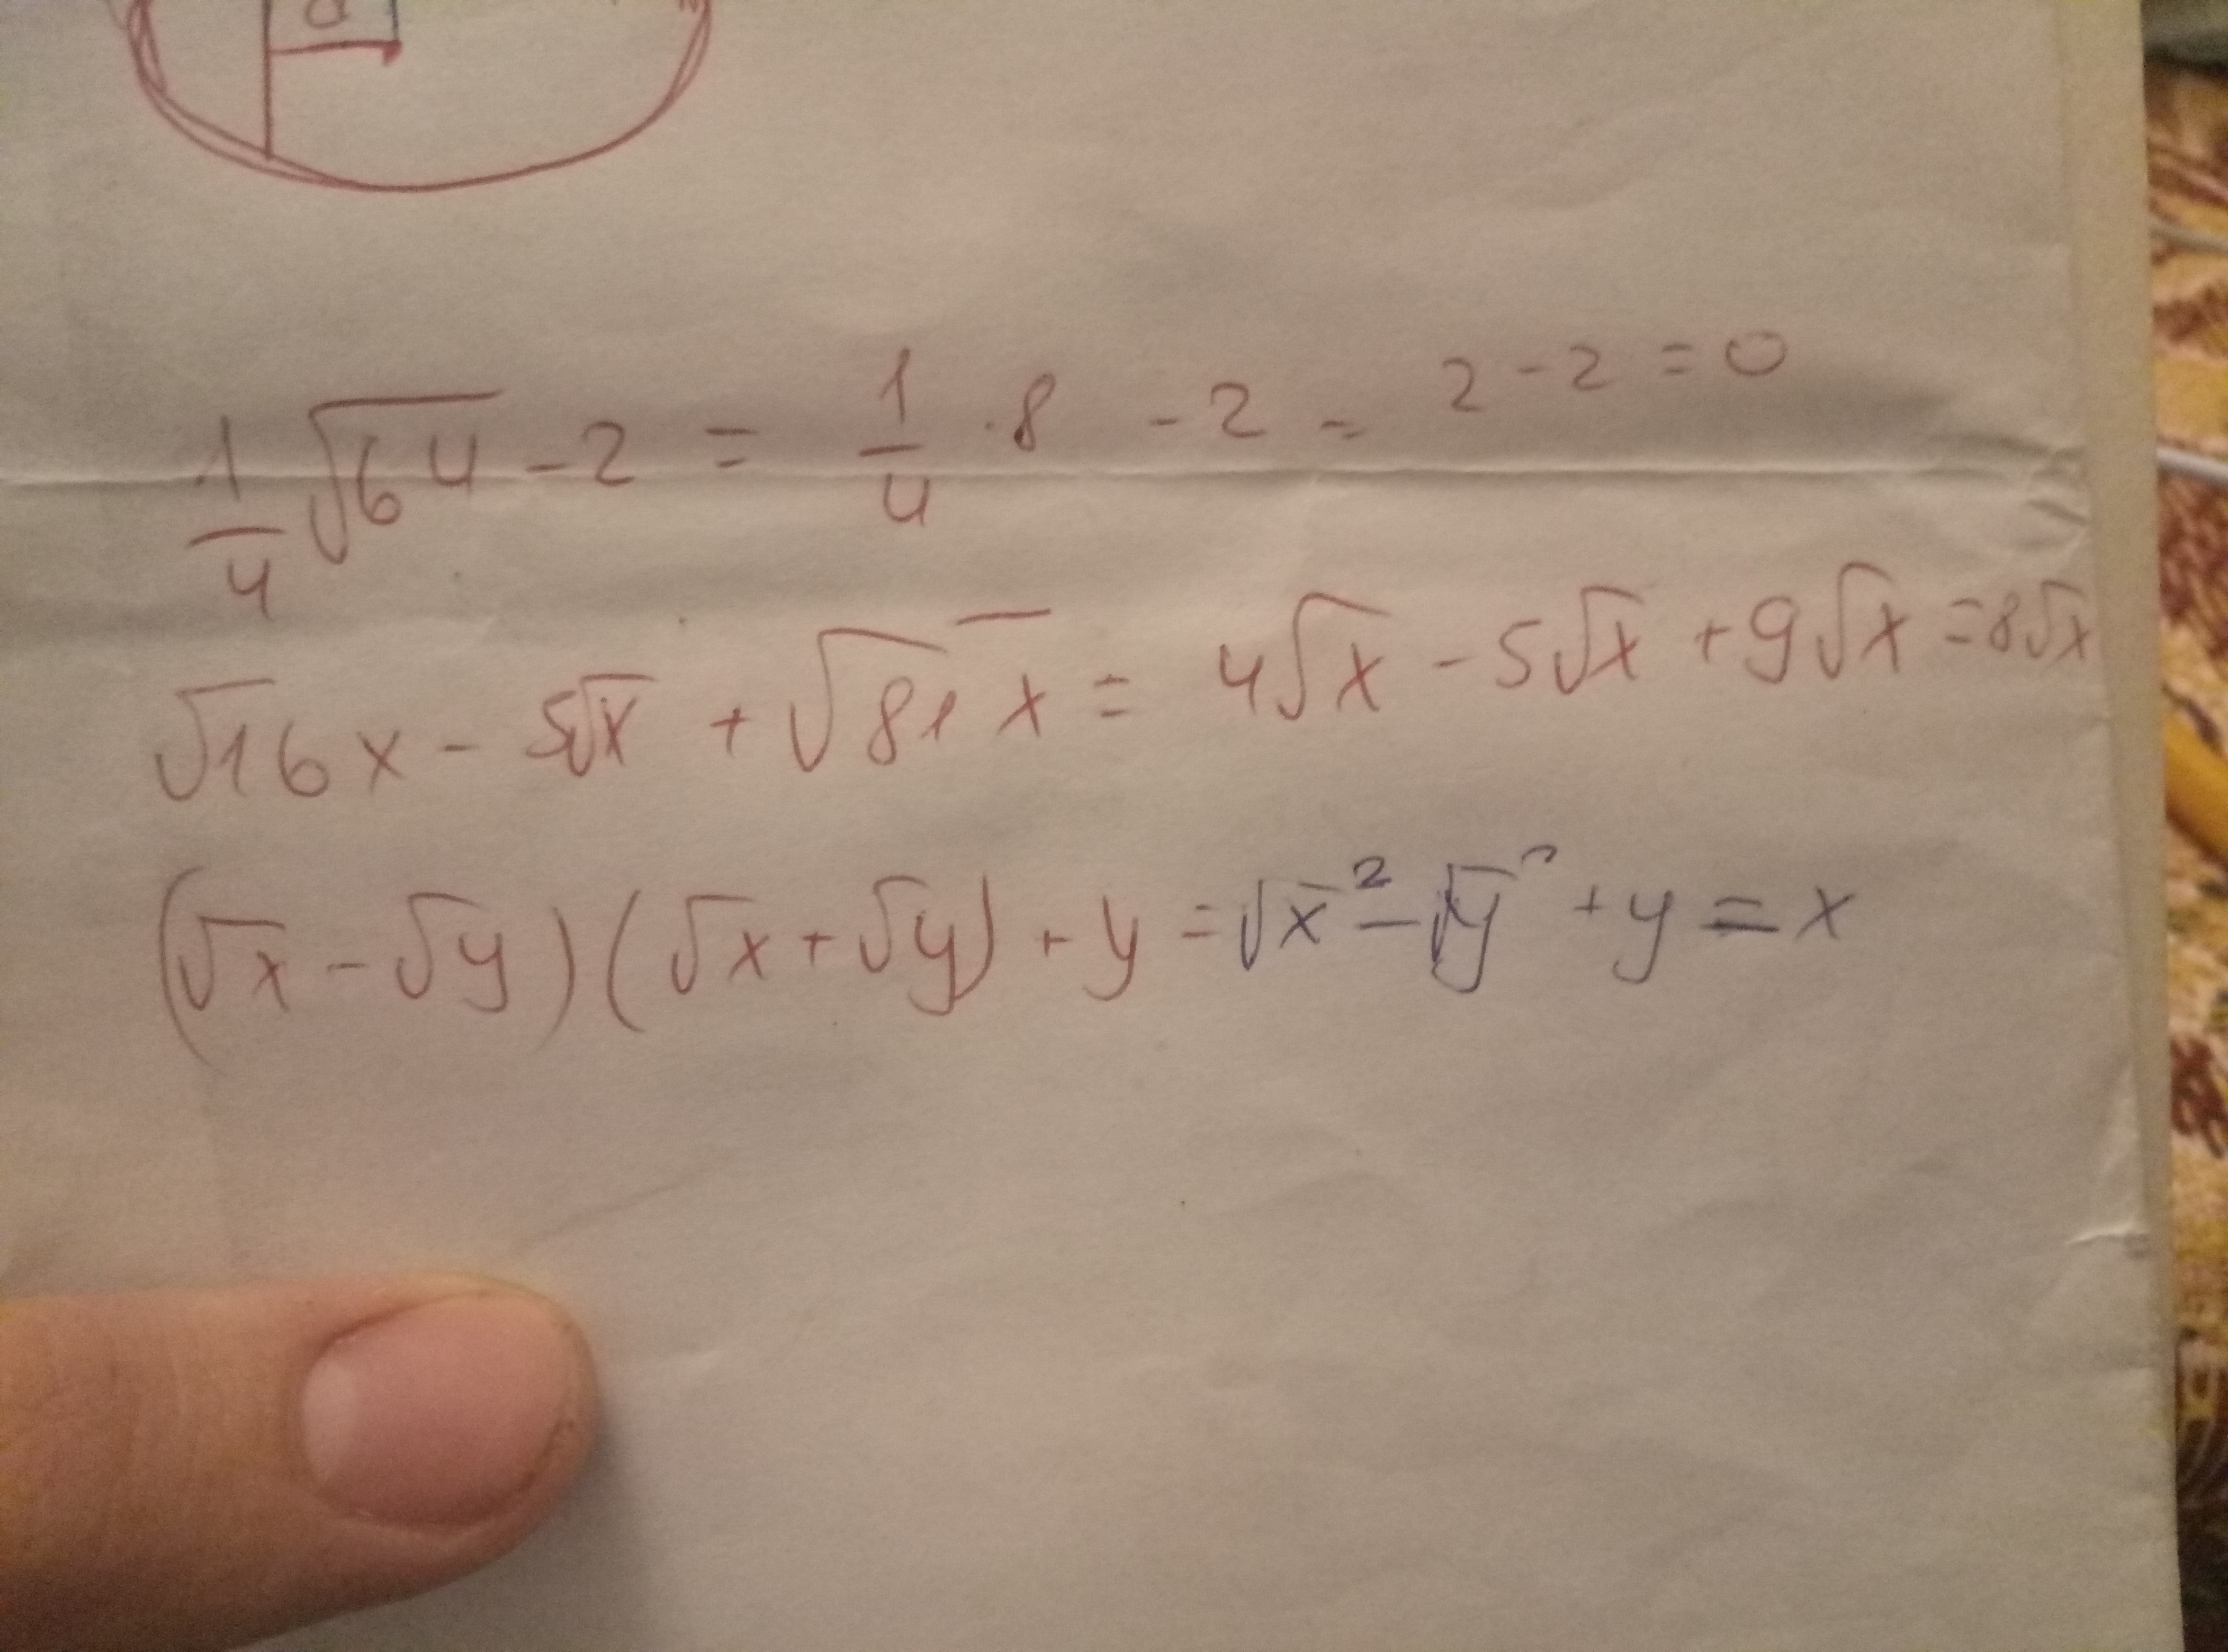 a
1/4 √64 - 2 = 1/4 · 8 - 2 = 2 - 2 = 0
√16x - 5√x + √81x = 4√x - 5√x + 9√x = 8√x
(√x - √y)(√x + √y) + y = √x² - √y² + y = x